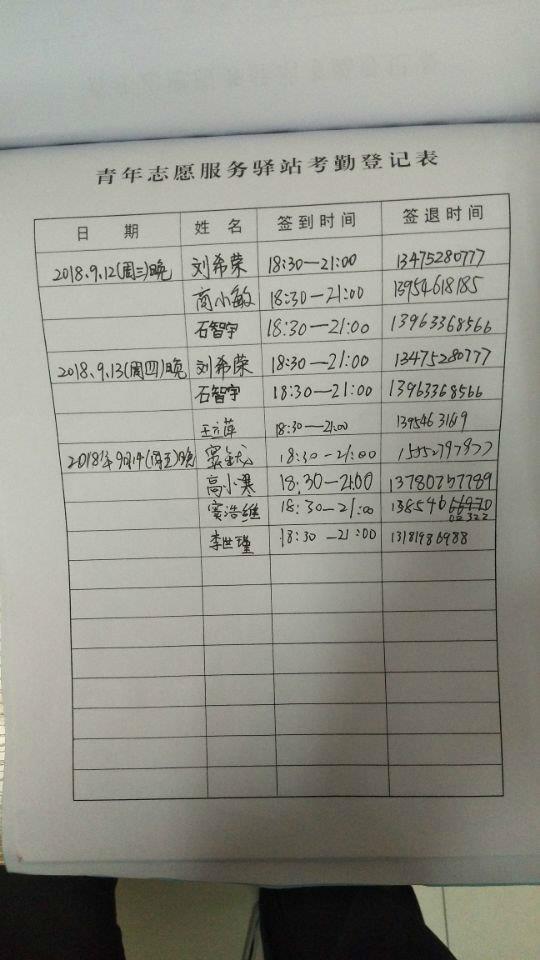 青年志愿服务驿站考勤登记表
日 期 姓 名 签到时间 签退时间
2018.9.12(周三)晚 刘希荣 18:30—21:00 13475280777
商小敏 18:30—21:00 13954618185
石智宇 18:30—21:00 13963368566
2018.9.13(周四)晚 刘希荣 18:30—21:00 13475280777
石智宇 18:30—21:00 13963368566
王立萍 18:30—21:00
2018年9月14(周五)晚 18:30—21:00
高小寒 18:30—21:00 13780757789
窦浩维 18:30—21:00
李世瑾 18:30—21:00 13181986988